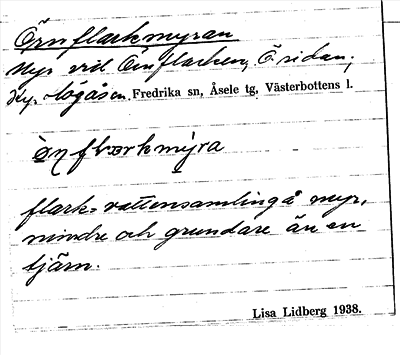 Örnflarkmyran
Myr vid Örnflarken, Ö. sidan,
Fredrika sn, Åsele tg, Västerbottens l.
flark = vattensamling å myr,
mindre och grundare än en
tjärn.
Lisa Lidberg 1938.